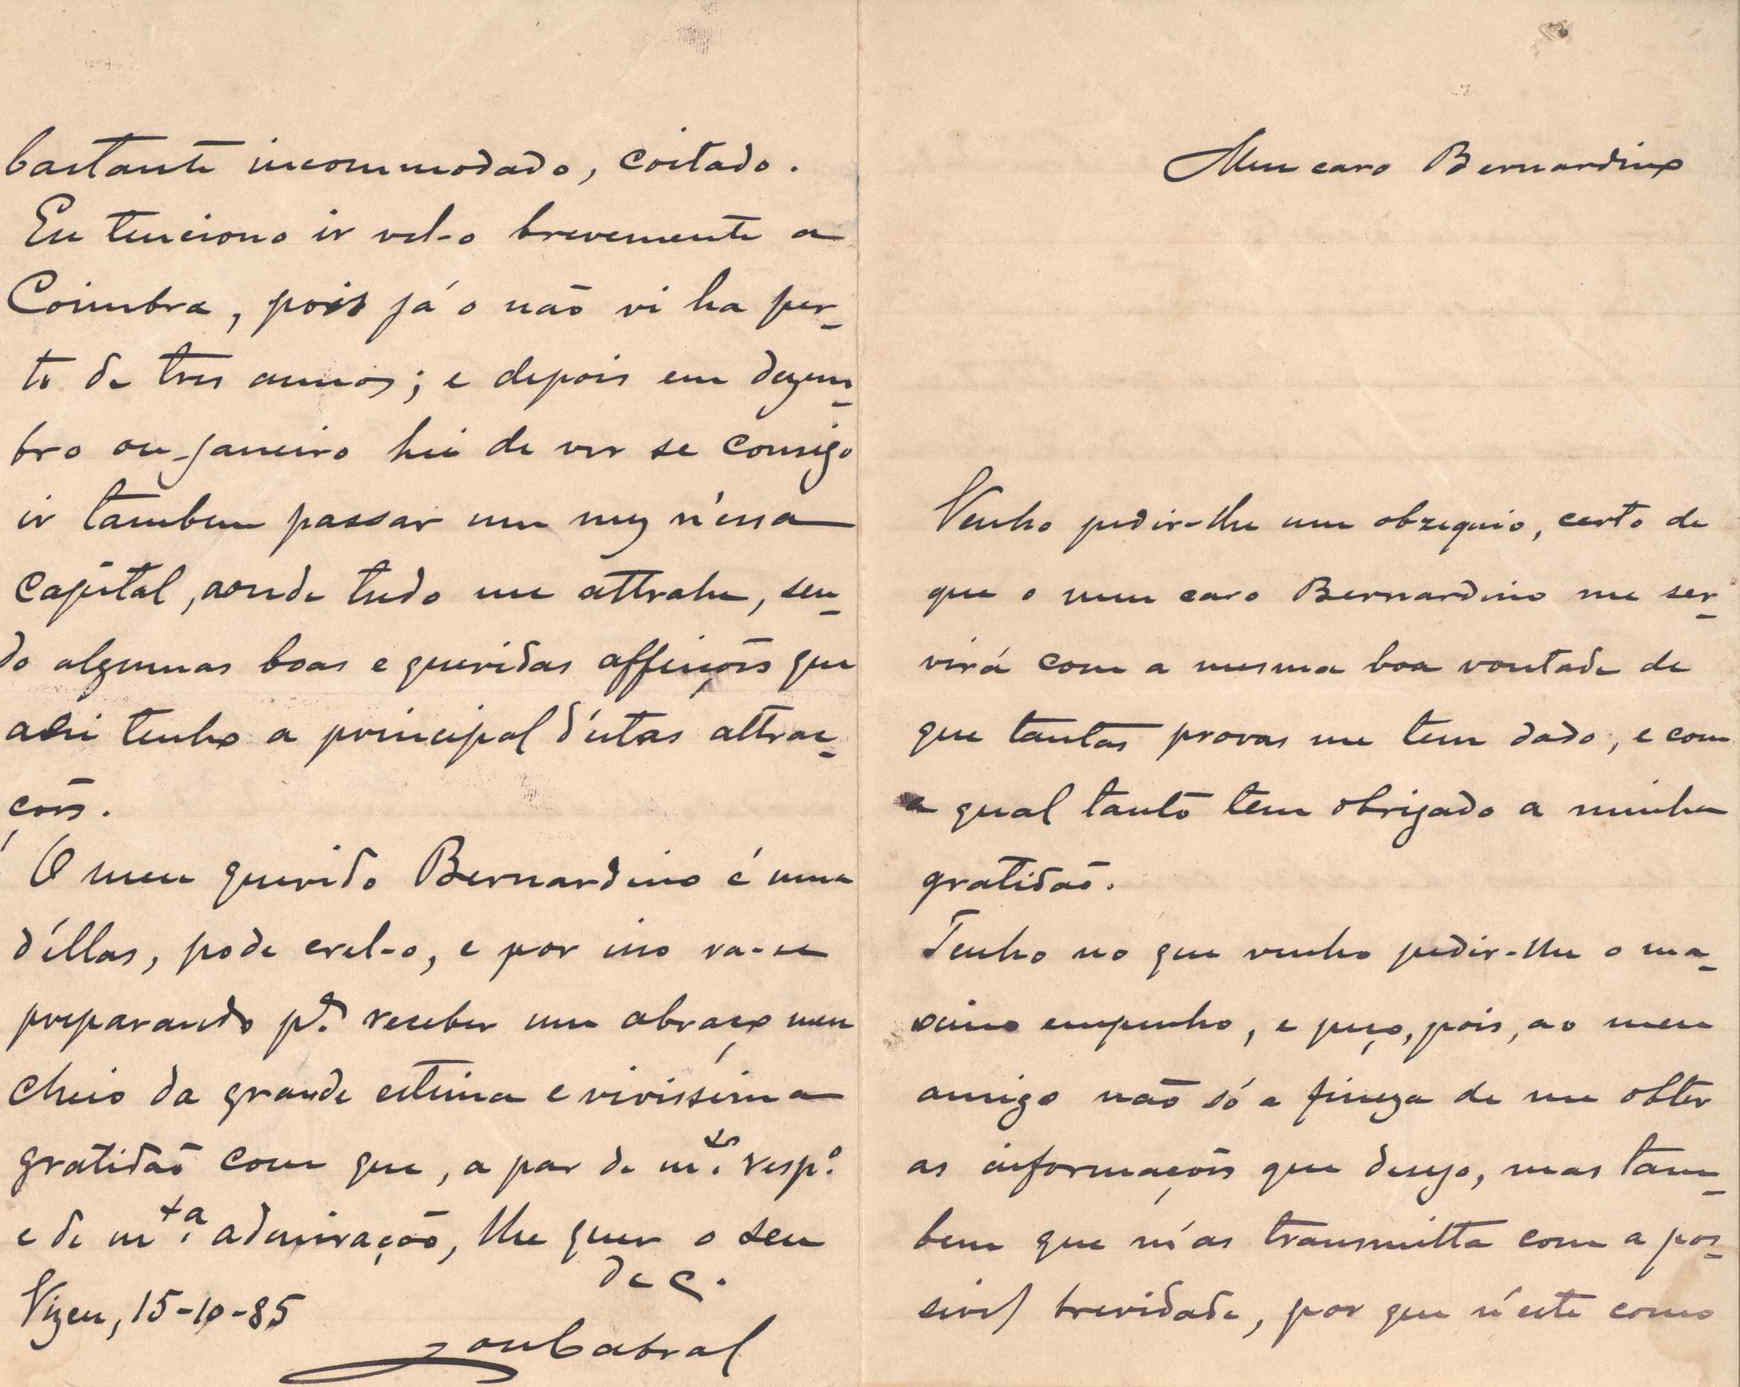 Meu caro Bernardino
Venho pedir-lhe um obzequio, certo de
que o meu caro Bernardino me ser-
virá com a mesma boa vontade de
que tantas provas me tem dado, e com
a qual tanto tem obrigado a minha
gratidão.
Tenho no que venho pedir-lhe o ma-
ximo empenho, e peço, pois, ao meu
amigo não só a fineza de me obter
as informações que desejo, mas tam-
bem que m'as transmitta com a pos-
sivel brevidade, por que n'este como
bastante incommodado, coitado.
Eu tenciono ir vel-o brevemente a
Coimbra, pois já o não vi ha per-
to de tres annos; e depois em dezem-
bro ou Janeiro hei de ver se consigo
ir tambem passar um mez n'essa
capital, aonde tudo me attrahe, sen-
do algumas boas e queridas affeições que
ahi tenho a principal d'estas attrac-
ções.
O meu querido Bernardino é uma
d'éllas, pode crel-o, e por isso va-se
preparando pª. receber um abraço meu
cheio da grande estima e vivissima
gratidão com que, a par de m.to resp.º
e de m.ta admiração, lhe quer o seu
de C.
Vizeu, 15-10-85
Jou Cabral